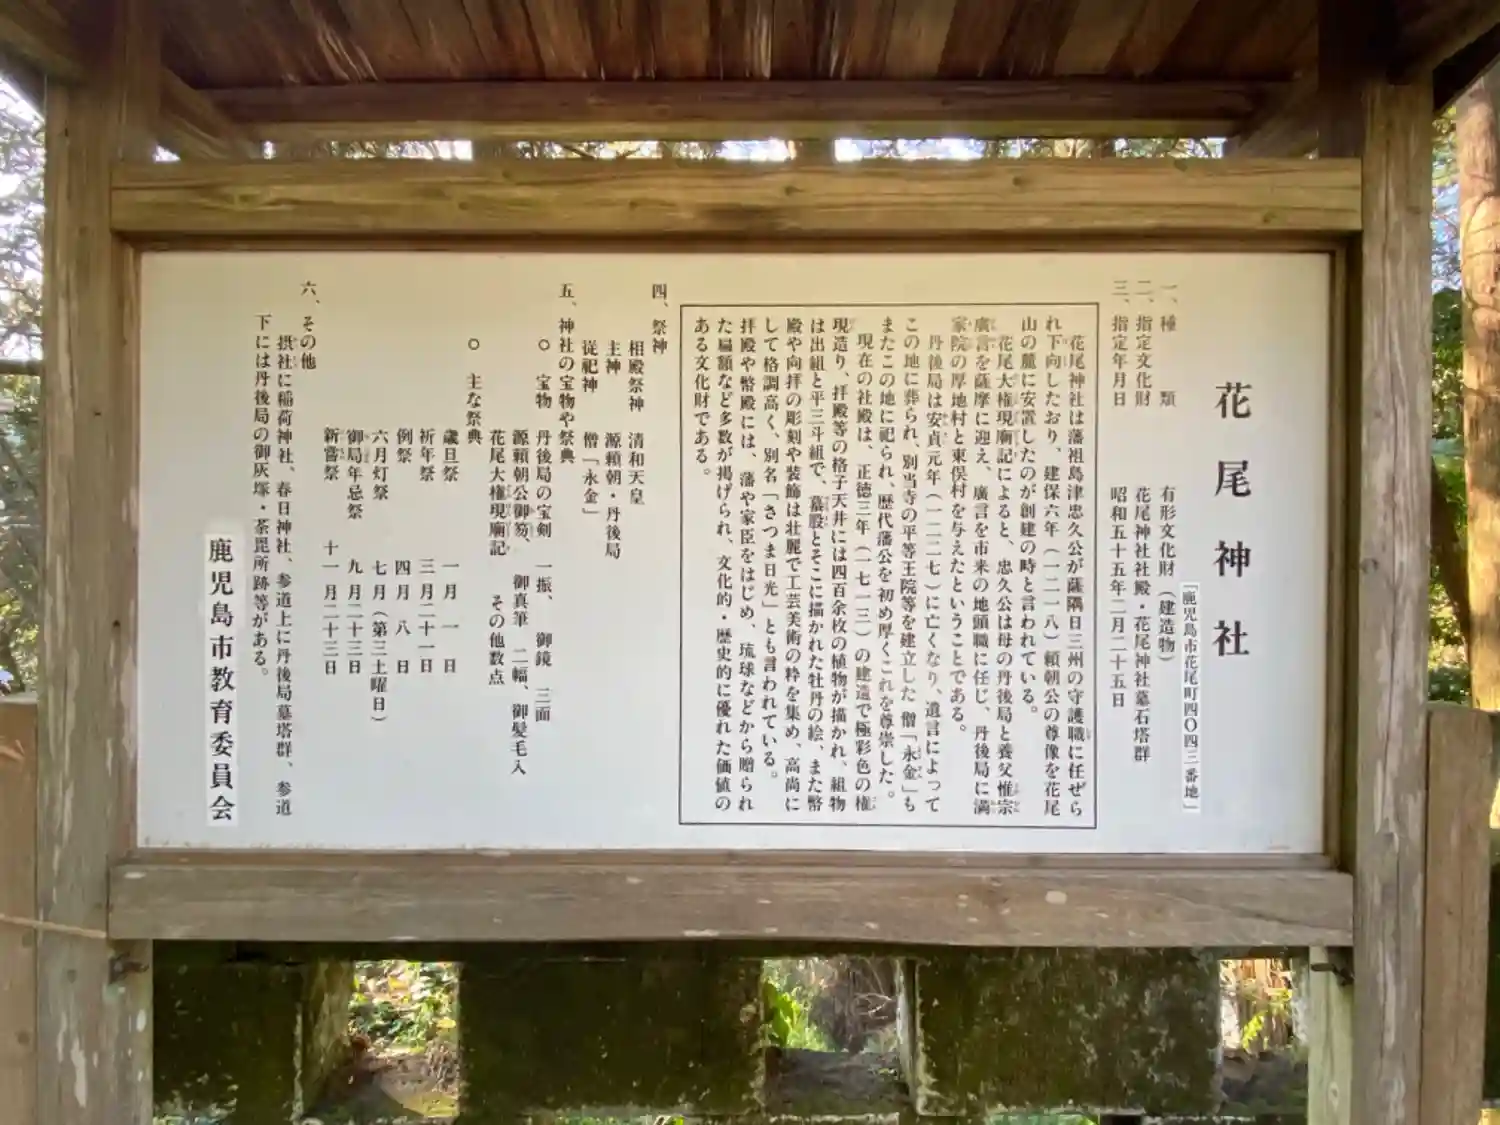 花尾神社
「鹿児島市花尾町四〇四三番地」
一、種類 有形文化財（建造物）
二、指定文化財 花尾神社社殿・花尾神社墓石塔群
三、指定年月日 昭和五十五年二月二十五日
花尾神社は藩祖島津忠久公が薩隅日三州の守護職に任ぜら
れ下向したおり、建保六年（一二一八）頼朝公の尊像を花尾
山の麓に安置したのが創建の時と言われている。
花尾大権現廟記によると、忠久公は母の丹後局と養父惟宗
廣言を薩摩に迎え、廣言を市来の地頭職に任じ、丹後局に満
家院の厚地村と東俣村を与えたということである。
丹後局は安貞元年（一二二七）に亡くなり、遺言によって
この地に葬られ、別当寺の平等王院等を建立した僧「永金」も
またこの地に祀られ、歴代藩公を初め厚くこれを尊崇した。
現在の社殿は、正徳三年（一七一三）の建造で極彩色の権
現造り、拝殿等の格子天井には四百余枚の植物が描かれ、組物
は出組と平三斗組で、蟇股とそこに描かれた牡丹の絵、また幣
殿や向拝の彫刻や装飾は壮麗で工芸美術の粋を集め、高尚に
して格調高く、別名「さつま日光」とも言われている。
拝殿や幣殿には、藩や家臣をはじめ、琉球などから贈られ
た扁額など多数が掲げられ、文化的・歴史的に優れた価値の
ある文化財である。
四、祭神
相殿祭神 清和天皇
主神 源頼朝・丹後局
従祀神 僧「永金」
五、神社の宝物や祭典
○ 宝物 丹後局の宝剣 一振、御鏡 三面
源頼朝公御笏、御真筆 二幅、御髪毛入
花尾大権現廟記 その他数点
○ 主な祭典
歳旦祭 一月一日
祈年祭 三月二十一日
例祭 四月八日
六月灯祭 七月（第三土曜日）
御局年忌祭 九月二十三日
新嘗祭 十一月二十三日
六、その他
摂社に稲荷神社、春日神社、参道上に丹後局墓塔群、参道
下には丹後局の御灰塚・荼毘所跡等がある。
鹿児島市教育委員会